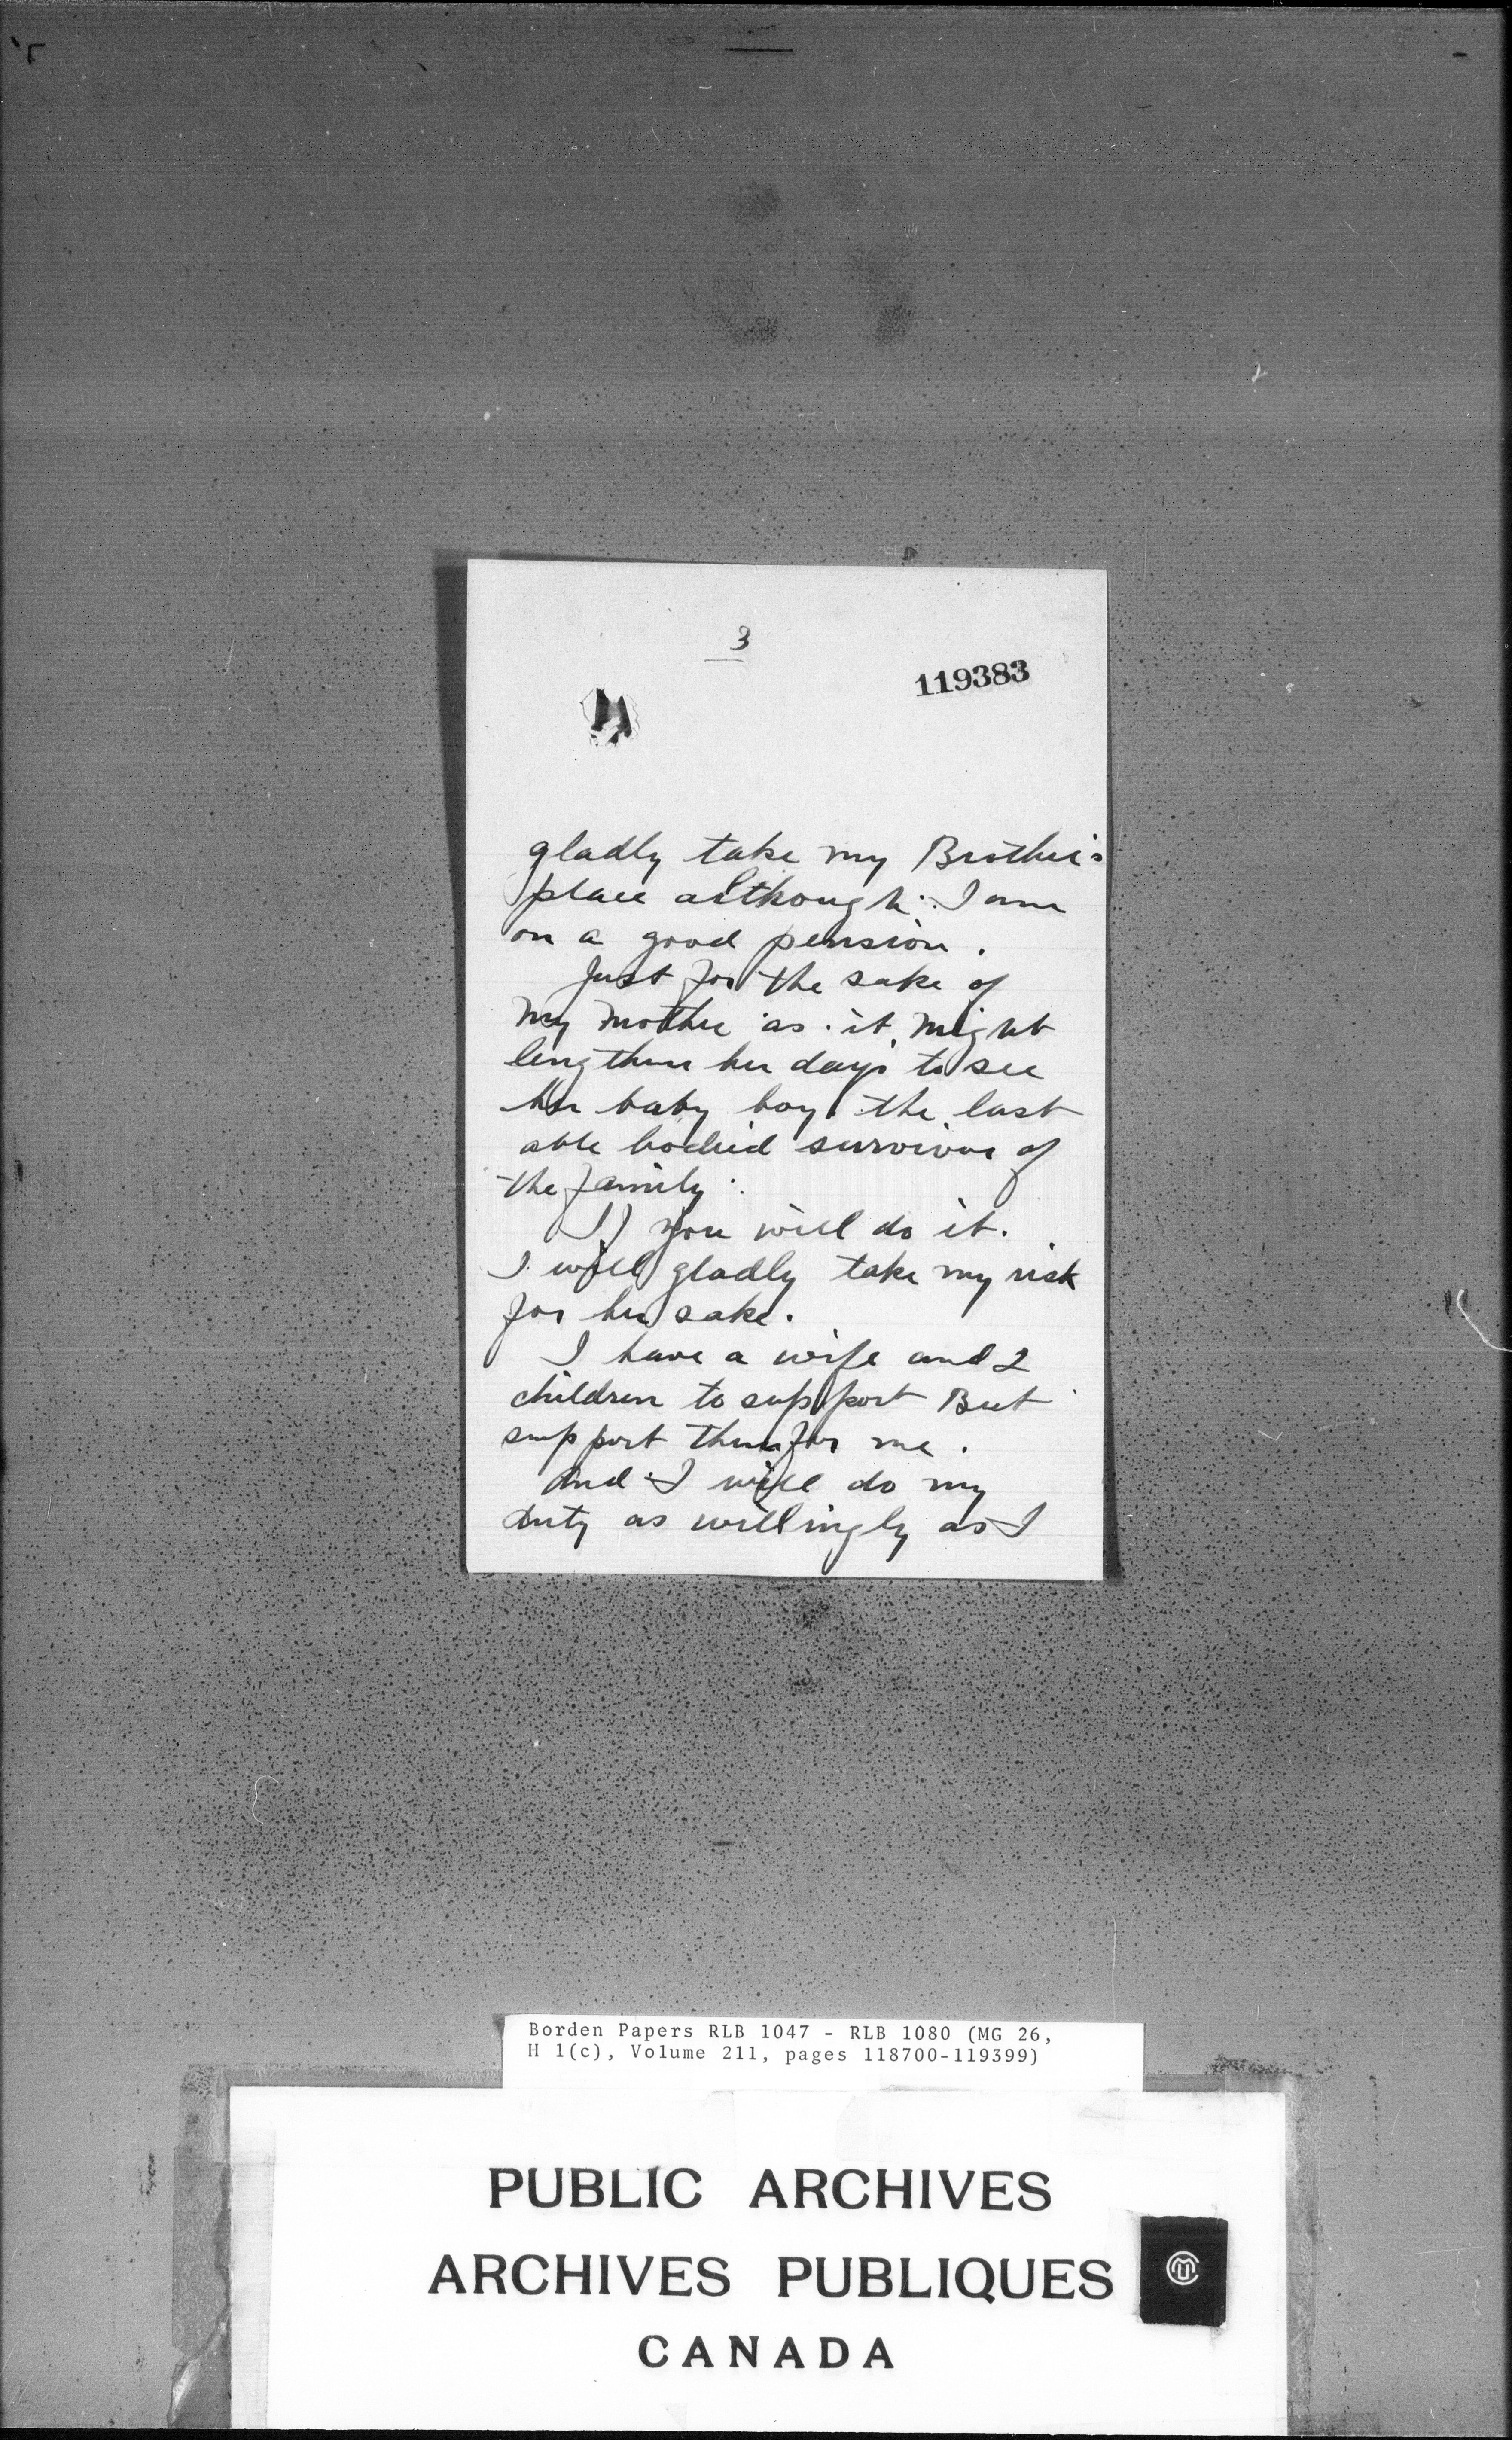 3
119383
gladly take my Brother's
place although I am
on a good pension.
Just for the sake of
My Mother as it might
lengthen her days to see
her baby boy the last
able bodied survivor of
the family.
If you will do it.
I will gladly take my risk
for her sake.
I have a wife and 2
children to support But
support them for me.
And I will do my
duty as willingly as I
Borden Papers RLB 1047 - RLB 1080 (MG 26,
H 1(c), Volume 211, pages 118700-119399)
PUBLIC ARCHIVES
ARCHIVES PUBLIQUES
CANADA